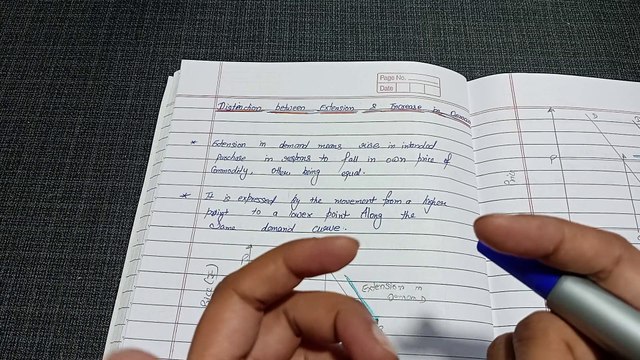 Page No.
Date
Distinction between Extension & Increase in Demand
* Extension in demand means rise in intended
purchase in respons to fall in own price of
commodity, other being equal.
* It is expressed by the movement from a higher
point to a lower point along the
Same demand curve.
Extension in
Demand
Price (₹)
D
P
Price
A